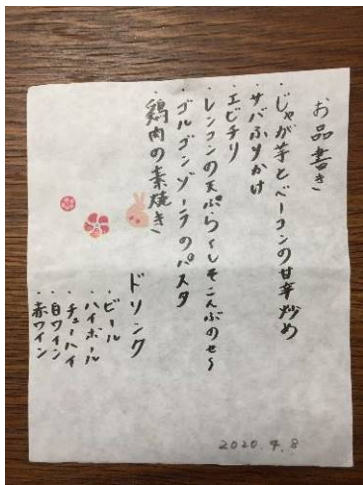 お品書き
・じゃが芋とベーコンの甘辛炒め
・サバふりかけ
・エビチリ
・レンコンの天ぷら〜しそこんぶのせ〜
・ゴルゴンゾーラのパスタ
・鶏肉の素焼き
ドリンク
・ビール
・ハイボール
・チューハイ
・白ワイン
・赤ワイン
2020.4.8